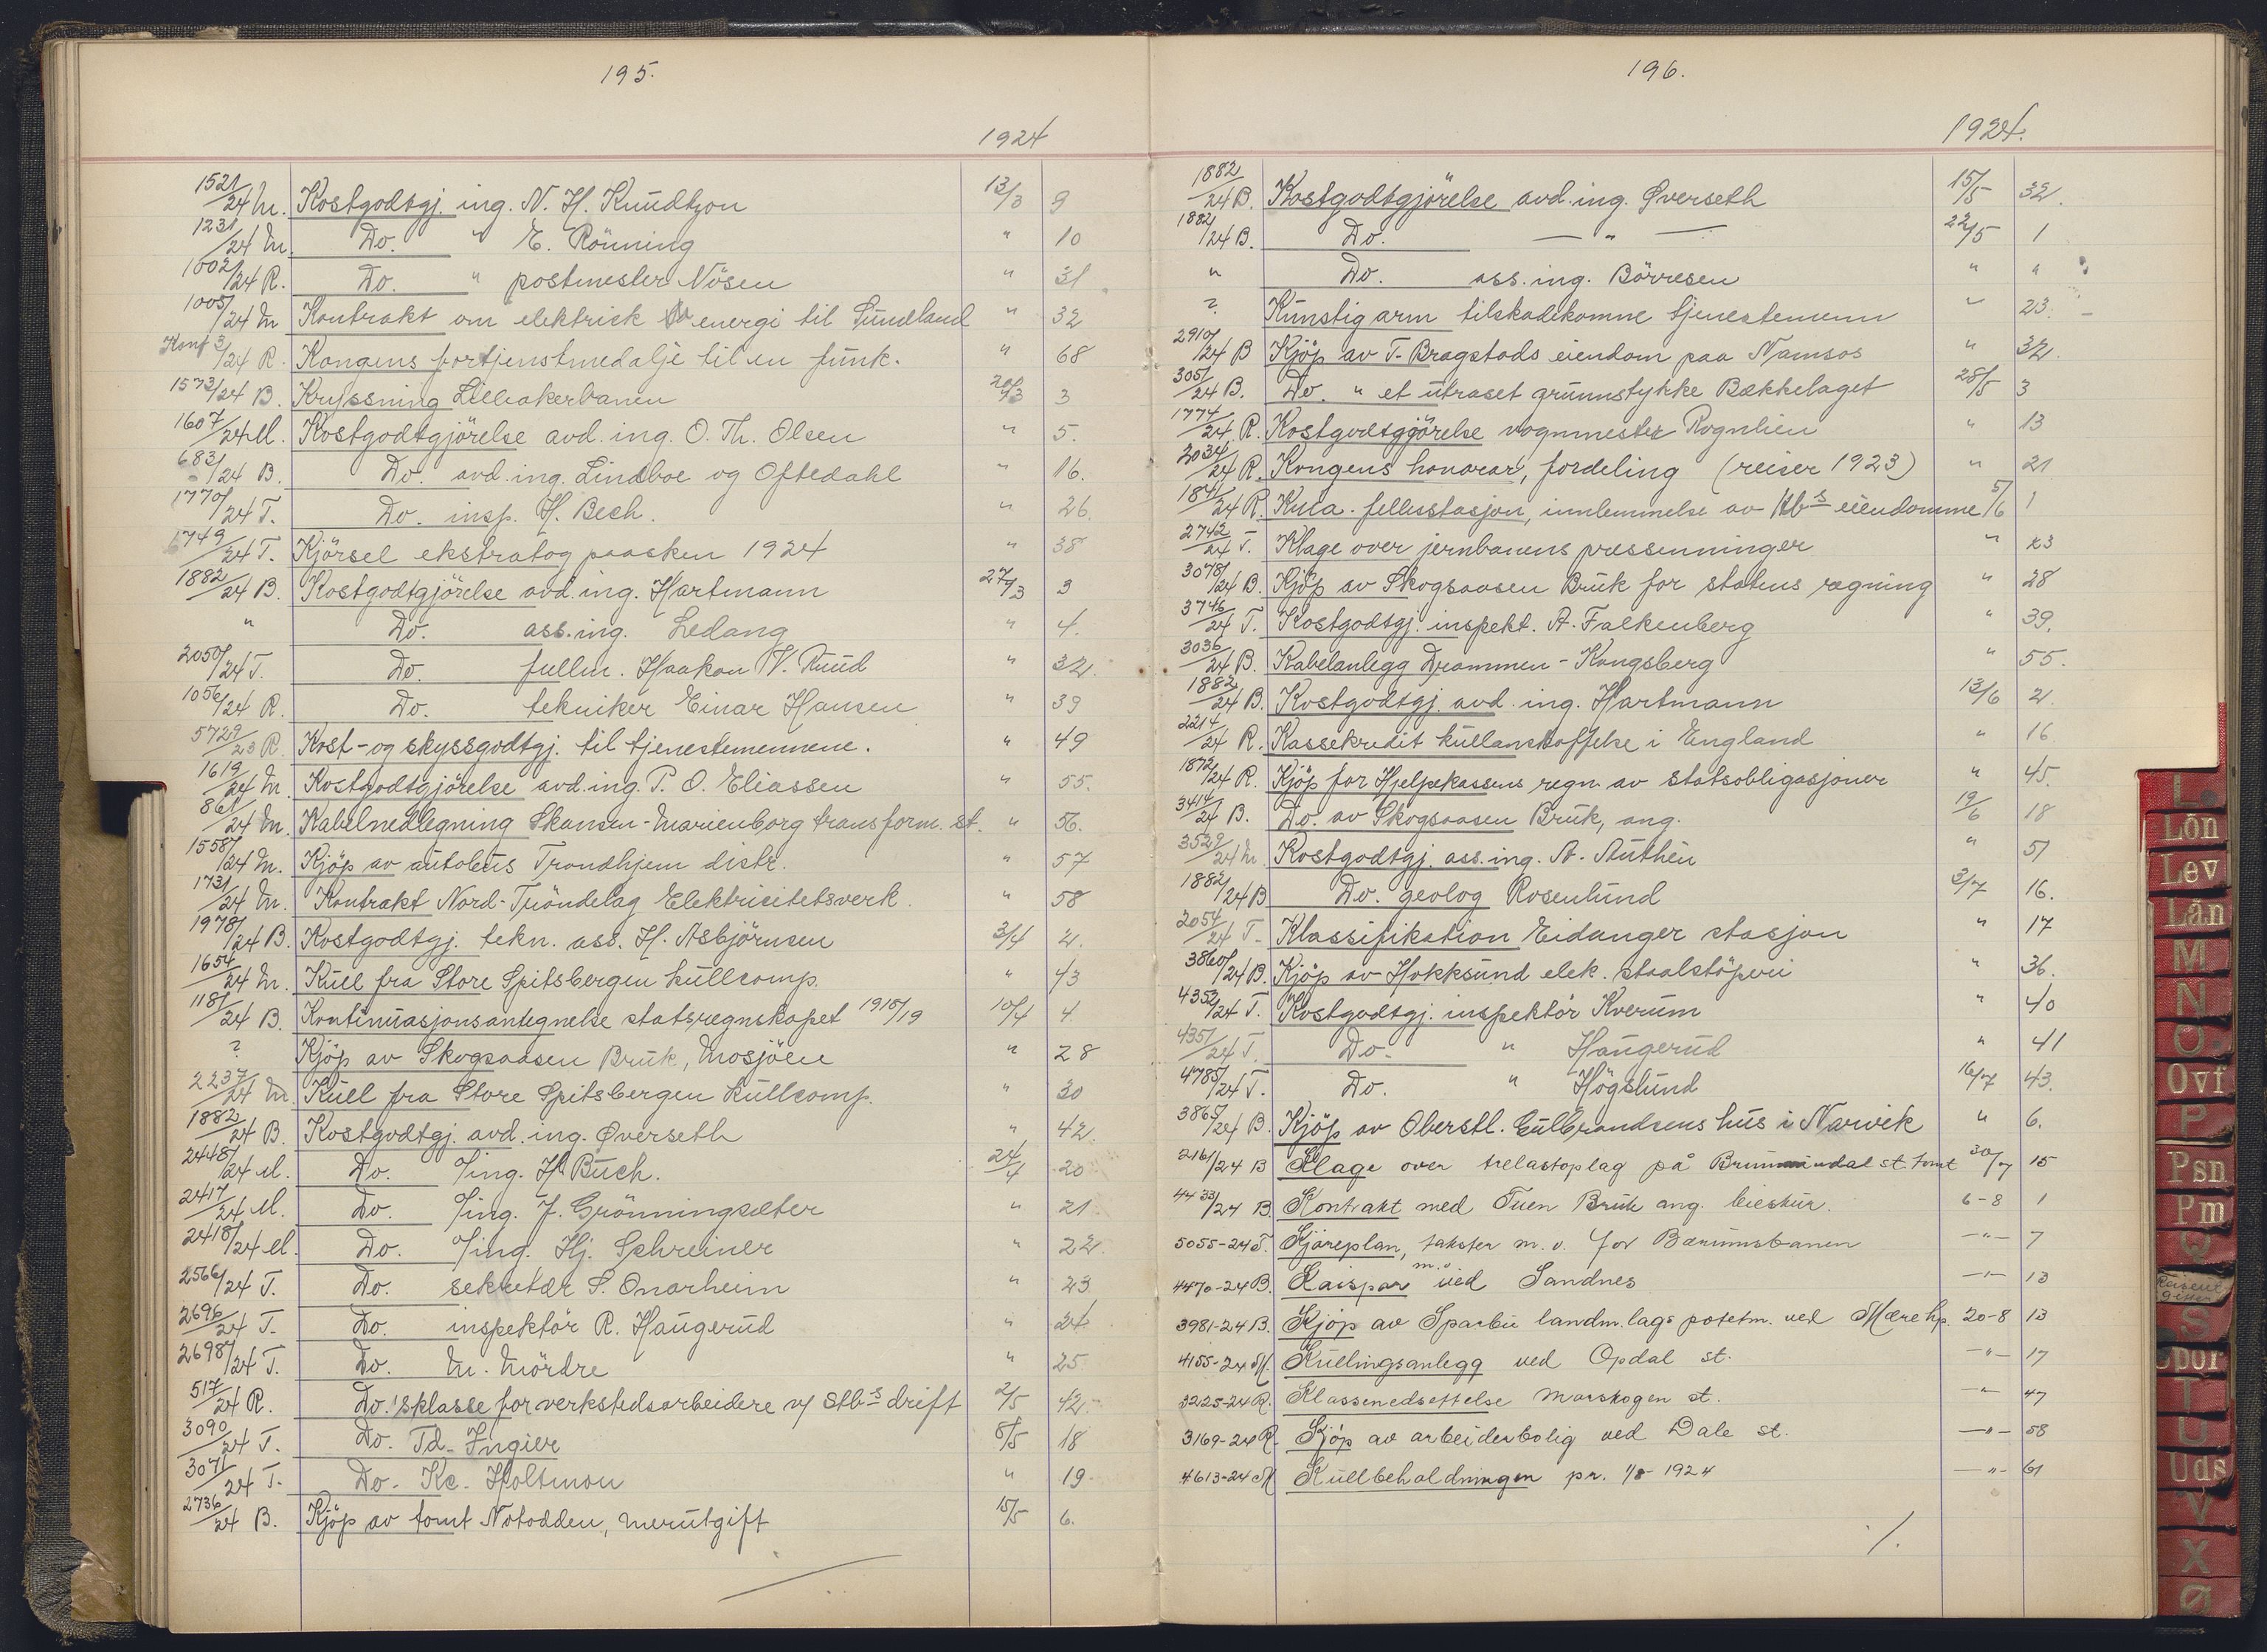 195.
1924
1521/24 M. Kostgodtgj. ing. N. H. Knudtzon 13/3 9
1231/24 M. Do. " E. Rönning " 10
1002/24 R. Do. " postmester Nösen " 31
1005/24 M Kontrakt om elektrisk energi til Sundland " 32
Konf 3/24 R. Kongens fortjenstmedalje til en funk. " 68
1573/24 B. Kryssning Lilleakerbanen 20/3 3
1607/24 M. Kostgodtgjörelse avd. ing. O. Th. Olsen " 5.
683/24 B. Do. avd. ing. Lindboe og Oftedahl " 16.
1770/24 T. Do. insp. H. Bech. " 26.
1749/24 T. Kjörsel ekstratog paasken 1924 " 38
1882/24 B. Kostgodtgjörelse avd. ing. Hartmann 27/3 3
" Do. ass. ing. Ledang " 4.
2050/24 T. Do. fullm. Haakon V. Ruud " 32.
1056/24 R. Do. tekniker Einar Hansen " 39
5729/23 R. Kost-og skyssgodtgj. til tjenestemennene. " 49
1619/24 M. Kostgodtgjörelse avd. ing. P. O. Eliassen " 55.
861/24 M. Kabelnedlegning Skansen-Marienborg transform. st. " 56.
1558/24 M. Kjöp av autobus Trondhjem distr. " 57
1731/24 M. Kontrakt Nord-Tröndelag Elektricitetsverk. " 58
1978/24 B. Kostgodtgj. tekn. ass. H. Asbjörnsen 3/4 2.
1654/24 M. Kull fra Store Spitsbergen kullcomp. " 43
1181/24 B. Kontinuasjonsantegnelse statsregnskapet 1918/19 10/4 4.
? Kjöp av Skogsaasen Bruk, Mosjöen " 28
2237/24 M. Kull fra Store Spitsbergen kullcomp. " 30
1882/24 B. Kostgodtgj. avd. ing. Øverseth " 42.
2448/24 M. Do. ing. H. Buch. 24/4 20
2417/24 M. Do. ing. J. Grönningsæter " 21
2418/24 M. Do. ing. Hj. Schreiner " 22.
2566/24 T. Do. sekretær S. Onarheim " 23
2696/24 T. Do. inspektör R. Haugerud " 24.
2698/24 T. Do. M. Mördre " 25
517/24 R. Do.'sklasse for verkstedsarbeidere v/ Stbs drift 2/5 42.
3090/24 T. Do. Td. Ingier 8/5 18
3071/24 T. Do. Kc. Holtmon " 19.
2736/24 B. Kjöp av tomt Notodden, merutgift 15/5 6.
196.
1924.
1882/24 B. Kostgodtgjörelse avd. ing. Øverseth 15/5 32.
1882/24 B. Do. — " — 22/5 1
" Do. ass. ing. Börresen " "
? Kunstig arm tilskadekomne tjenestemenn " 23.
2910/24 B Kjöp av T. Bragstads eiendom paa Namsos " 32.
3051/24 B. Do. " et utraset grunnstykke Bækkelaget 28/5 3
1774/24 R. Kostgodtgjörelse vognmester Rognlien " 13
2034/24 R. Kongens honorar, fordeling (reiser 1923) " 21
1841/24 R. Kna. fellesstasjon, innlemmelse av Hbs eiendomme 5/6 1
2742/24 T. Klage over jernbanens pressenninger " 23
3078/24 B. Kjöp av Skogsaasen Bruk for statens regning " 28
3746/24 T. Kostgodtgj. inspekt. A. Falkenberg " 39.
3036/24 B. Kabelanlegg Drammen - Kongsberg " 55.
1882/24 B. Kostgodtgj. avd. ing. Hartmann 13/6 2.
2214/24 R. Kassekredit kullanskaffelse i England " 16.
1872/24 R. Kjöp for Hjelpekassens regn. av statsobligasjoner " 45.
3414/24 B. Do. av Skogsaasen Bruk, ang. 19/6 18
3529/24 M. Kostgodtgj. ass. ing. A. Authén " 51
1882/24 B Do. geolog Rosenlund 3/7 16.
2054/24 T. Klassifikation Eidanger stasjon " 17
3860/24 B. Kjöp av Hokksund elek. staalstöperi " 36.
4352/24 T. Kostgodtgj. inspektör Kverum " 40
4351/24 T. Do. " Haugerud " 41
4785/24 T. Do. " Högslund 16/7 43.
3865/24 B. Kjöp av Oberstl. Gulbrandsens hus i Narvik " 6.
2161/24 B Klage over trelastoplag på Brummundal st. tomt 30/7 15
4433/24 B. Kontrakt med Tuen Bruk ang. leieskur. 6-8 1
5055-24 T. Kjöreplan, takster m.v. for Bærumsbanen —"— 7
4470-24 B. Kaispor m.v. ved Sandnes —"— 13
3981-24 B. Kjöp av Sparbu landm. lags potetm. ved Mære hp. 20-8 13
4155-24 M. Kullingsanlegg ved Opdal st. —"— 17
3225-24 R. Klassenedsettelse Morskogen st. —"— 47
3169-24 R. Kjöp av arbeiderbolig ved Dale st. —"— 58
4613-24 M Kullbeholdningen pr. 1/8 1924 —"— 61
/.
L
Lön
Lev
Lån
M
N
O
Ovf
P
Psn
Pm
Q
S
Spor
T
U
Uds
V
X
Ø